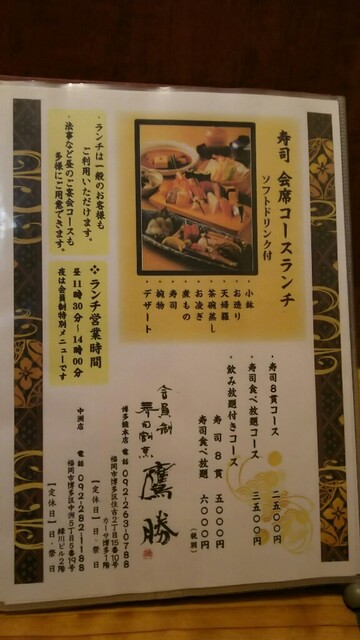 寿司 会席コースランチ
ソフトドリンク付
・小鉢
・お造り
・天婦羅
・茶碗蒸し
・お凌ぎ
・煮もの
・寿司
・椀物
・デザート
・ランチは一般のお客様も
ご利用いただけます。
・法事など昼のご宴会コースも
多様にご用意できます。
❖ランチ営業時間
昼11時30分〜14時00分
夜は会員制特別メニューです
・寿司8貫コース 二五〇〇円
・寿司食べ放題コース 三五〇〇円
・飲み放題付きコース
寿司8貫 五〇〇〇円
寿司食べ放題 六〇〇〇円
(税別)
会員制
寿司割烹 鷹勝
博多駅本店 電話 092-263-0788
福岡市博多区住吉2丁目15番10号
カーサ博多1階
【定休日】日・祭日
中洲店 電話 092-282-1188
福岡市博多区中洲5丁目5番19号
緑川ビル2階
【定休日】日・祭日